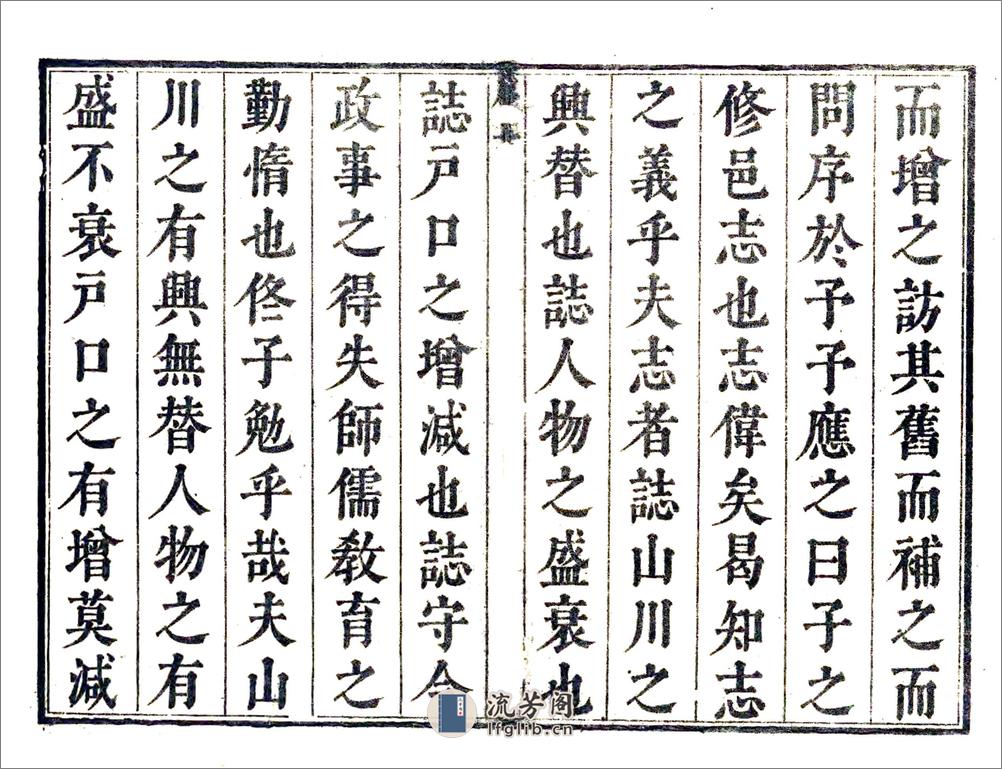 而增之訪其舊而補之而
問序於予予應之曰子之
修邑志也志偉矣曷知志
之義乎夫志者誌山川之
興替也誌人物之盛衰也
誌戶口之增減也誌守令
政事之得失師儒敎育之
勤惰也佟子勉乎哉夫山
川之有興無替人物之有
盛不衰戶口之有增莫減
流芳阁
lfglib.cn